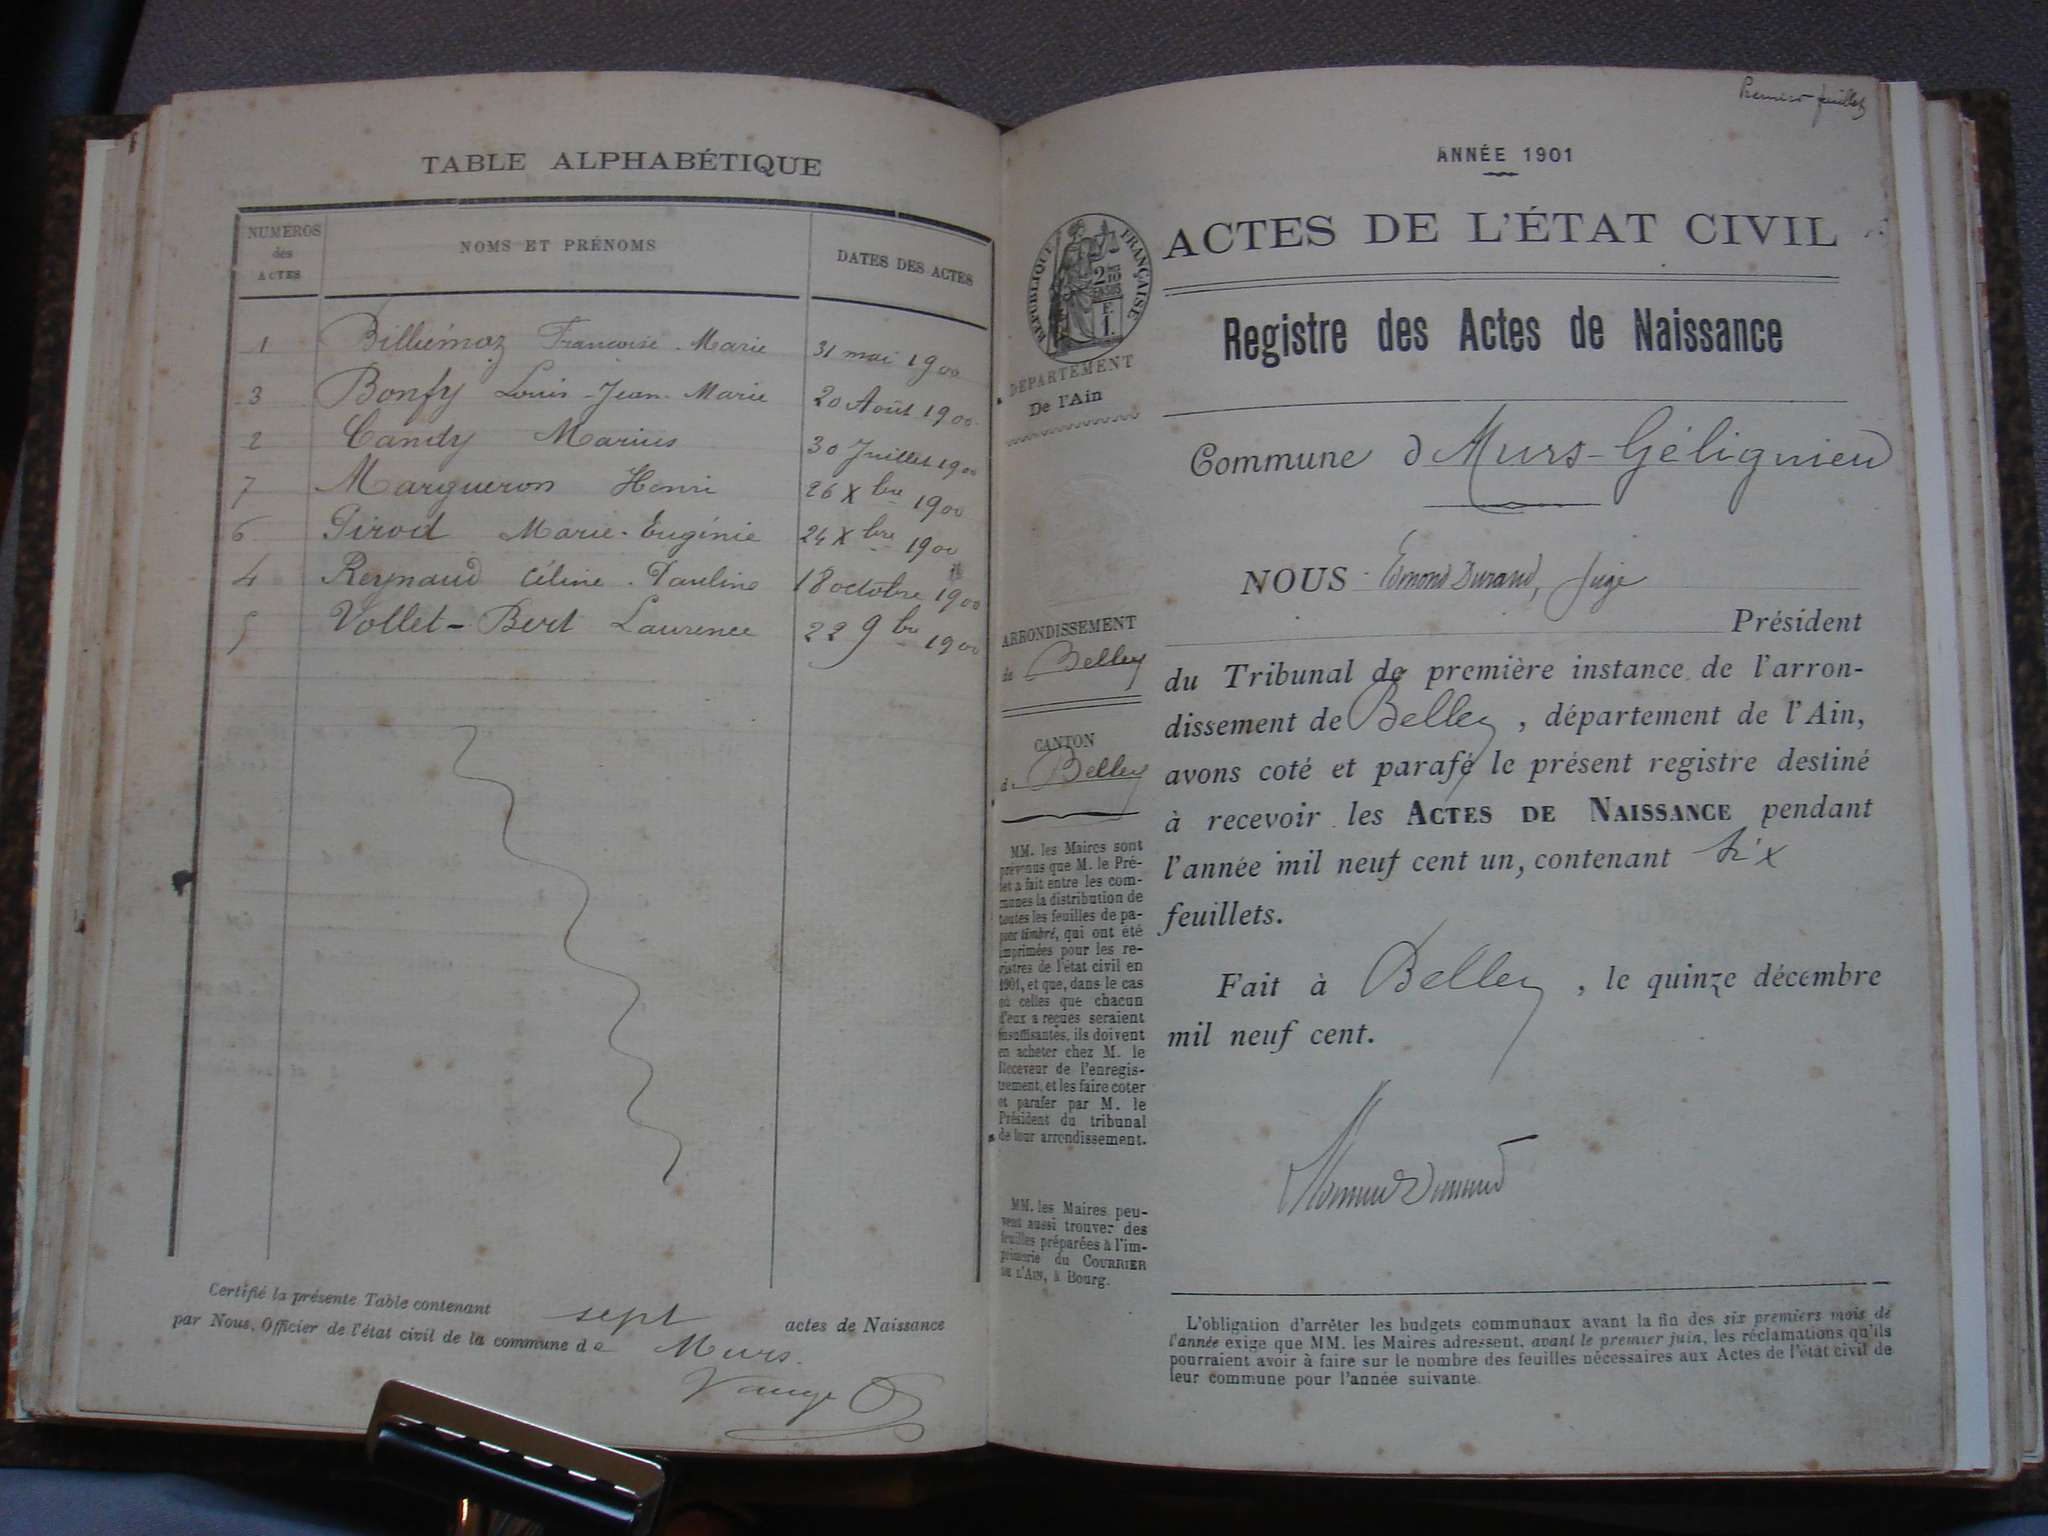 TABLE ALPHABÉTIQUE
NUMEROS des ACTES
NOMS ET PRÉNOMS
DATES DES ACTES
1 Billiémaz Françoise-Marie 31 mai 1900
3 Bonfy Louis-Jean-Marie 20 Août 1900
2 Candy Marius 30 Juillet 1900
7 Margueron Henri 26 Xbre 1900
6 Pirod Marie-Eugénie 24 Xbre 1900
4 Reynaud Céline-Pauline 18 octobre 1900
5 Vollet-Bert Laurence 22 9bre 1900
Certifié la présente Table contenant sept actes de Naissance
par Nous, Officier de l'état civil de la commune de Murs.
Premier feuillet
ANNÉE 1901
ACTES DE L'ÉTAT CIVIL
RÉPUBLIQUE FRANÇAISE
2/10 EN SUS
F.
1.
DÉPARTEMENT
De l'Ain
Registre des Actes de Naissance
Commune d Murs-Gélignieu
NOUS Edmond Durand, Juge
Président
du Tribunal de première instance de l'arron-
dissement de Belley, département de l'Ain,
avons coté et parafé le présent registre destiné
à recevoir les ACTES DE NAISSANCE pendant
l'année mil neuf cent un, contenant
feuillets.
Fait à Belley, le quinze décembre
mil neuf cent.
ARRONDISSEMENT
de Belley
CANTON
d. Belley
MM. les Maires sont
prévenus que M. le Pré-
fet a fait entre les com-
munes la distribution de
toutes les feuilles de pa-
pier timbré, qui ont été
imprimées pour les re-
gistres de l'état civil en
1901, et que, dans le cas
où celles que chacun
d'eux a reçues seraient
insuffisantes, ils doivent
en acheter chez M. le
Receveur de l'enregis-
trement, et les faire coter
et parafer par M. le
Président du tribunal
de leur arrondissement.
MM. les Maires peu-
vent aussi trouver des
feuilles préparées à l'im-
primerie du COURRIER
DE L'AIN, à Bourg.
L'obligation d'arrêter les budgets communaux avant la fin des six premiers mois de
l'année exige que MM. les Maires adressent, avant le premier juin, les réclamations qu'ils
pourraient avoir à faire sur le nombre des feuilles nécessaires aux Actes de l'état civil de
leur commune pour l'année suivante.